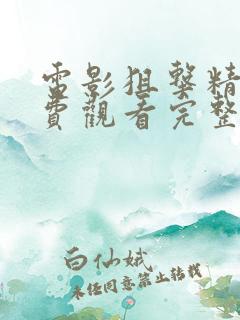 電影狙擊精
費觀看完整
白仙娥
未經同意禁止轉載